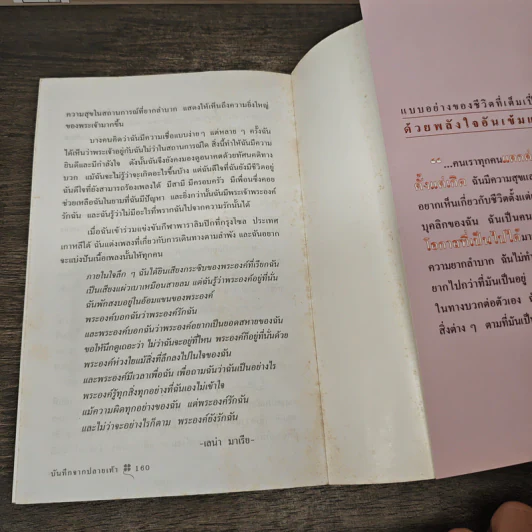 ความสุขในสถานการณ์ที่ยากลำบาก แสดงให้เห็นถึงความยิ่งใหญ่
ของพระเจ้ามากขึ้น
บางคนคิดว่าฉันมีความเชื่อแบบง่าย ๆ แต่หลาย ๆ ครั้งฉัน
ได้เห็นว่าพระเจ้าอยู่กับฉันไม่ว่าในสถานการณ์ใด สิ่งนี้ทำให้ฉันมีความ
ยินดีและมีกำลังใจ ดังนั้นฉันจึงยังคงมองดูอนาคตด้วยทัศนคติทาง
บวก แม้ฉันจะไม่รู้ว่าจะเกิดอะไรขึ้นบ้าง แต่ฉันดีใจที่ฉันยังมีชีวิตอยู่
ฉันดีใจที่ยังสามารถร้องเพลงได้ มีสามี มีครอบครัว มีเพื่อนซึ่งคอย
ช่วยเหลือฉันในยามที่ฉันมีปัญหา และยิ่งกว่านั้นฉันมีพระเจ้าพระองค์
รักฉัน และฉันรู้ว่าไม่มีอะไรที่พรากฉันไปจากความรักนั้นได้
เมื่อฉันเข้าร่วมแข่งขันกีฬาพาราลิมปิกที่กรุงโซล ประเทศ
เกาหลีใต้ ฉันแต่งเพลงที่เกี่ยวกับการเดินทางตามลำพัง และฉันอยาก
จะแบ่งปันเนื้อเพลงนั้นให้ทุกคน
ภายในใจลึก ๆ ฉันได้ยินเสียงกระซิบของพระองค์ที่เรียกฉัน
เป็นเสียงแผ่วเบาเหมือนสายลม แต่ฉันรู้ว่าพระองค์อยู่ที่นั่น
ฉันพักสงบอยู่ในอ้อมแขนของพระองค์
พระองค์บอกฉันว่าพระองค์รักฉัน
และพระองค์บอกฉันว่าพระองค์อยากเป็นยอดสหายของฉัน
ขอให้นึกดูเถอะว่า ไม่ว่าฉันจะอยู่ที่ไหน พระองค์ก็อยู่ที่นั่นด้วย
พระองค์ห่วงใยแม้สิ่งที่ลึกลงไปในใจของฉัน
และพระองค์มีเวลาเพื่อฉัน เพื่อถามฉันว่าฉันเป็นอย่างไร
พระองค์รู้ทุกสิ่งทุกอย่างที่ฉันเองไม่เข้าใจ
แม้ความผิดทุกอย่างของฉัน แต่พระองค์รักฉัน
และไม่ว่าจะอย่างไรก็ตาม พระองค์ยังรักฉัน
-เลน่า มาเรีย-
บันทึกจากปลายเท้า 160
แบบอย่างของชีวิตที่เต็มเปี่
ด้วยพลังใจอันเข้มแ
“...คนเราทุกคน
ตั้งแต่เกิด ฉันมีความสุขแล
อยากเห็นเกี่ยวกับชีวิตตั้งแต่
บุคลิกของฉัน ฉันเป็นคน
ความยากลำบาก ฉันไม่ทำ
ยากไปกว่าที่มันเป็นอยู่
ในทางบวกต่อตัวเอง
สิ่งต่าง ๆ ตามที่มันเป็น